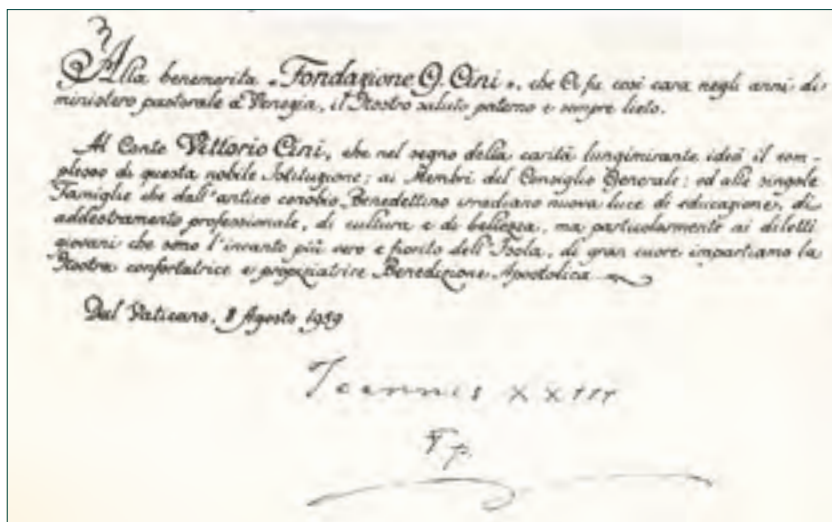 Alla benemerita "Fondazione G. Cini", che Ci fu così cara negli anni di
ministero pastorale a Venezia, il Nostro saluto paterno e sempre lieto.
Al Conte Vittorio Cini, che nel segno della carità lungimirante ideò il com-
plesso di questa nobile Istituzione; ai Membri del Consiglio Generale; ed alle singole
Famiglie che dall'antico cenobio Benedettino irradiano nuova luce di educazione, di
addestramento professionale, di cultura e di bellezza, ma particolarmente ai diletti
giovani che sono l'incanto più vero e fiorito dell'Isola, di gran cuore impartiamo la
Nostra confortatrice e propiziatrice Benedizione Apostolica
Dal Vaticano, 8 Agosto 1959
Ioannes XXIII
Pp.